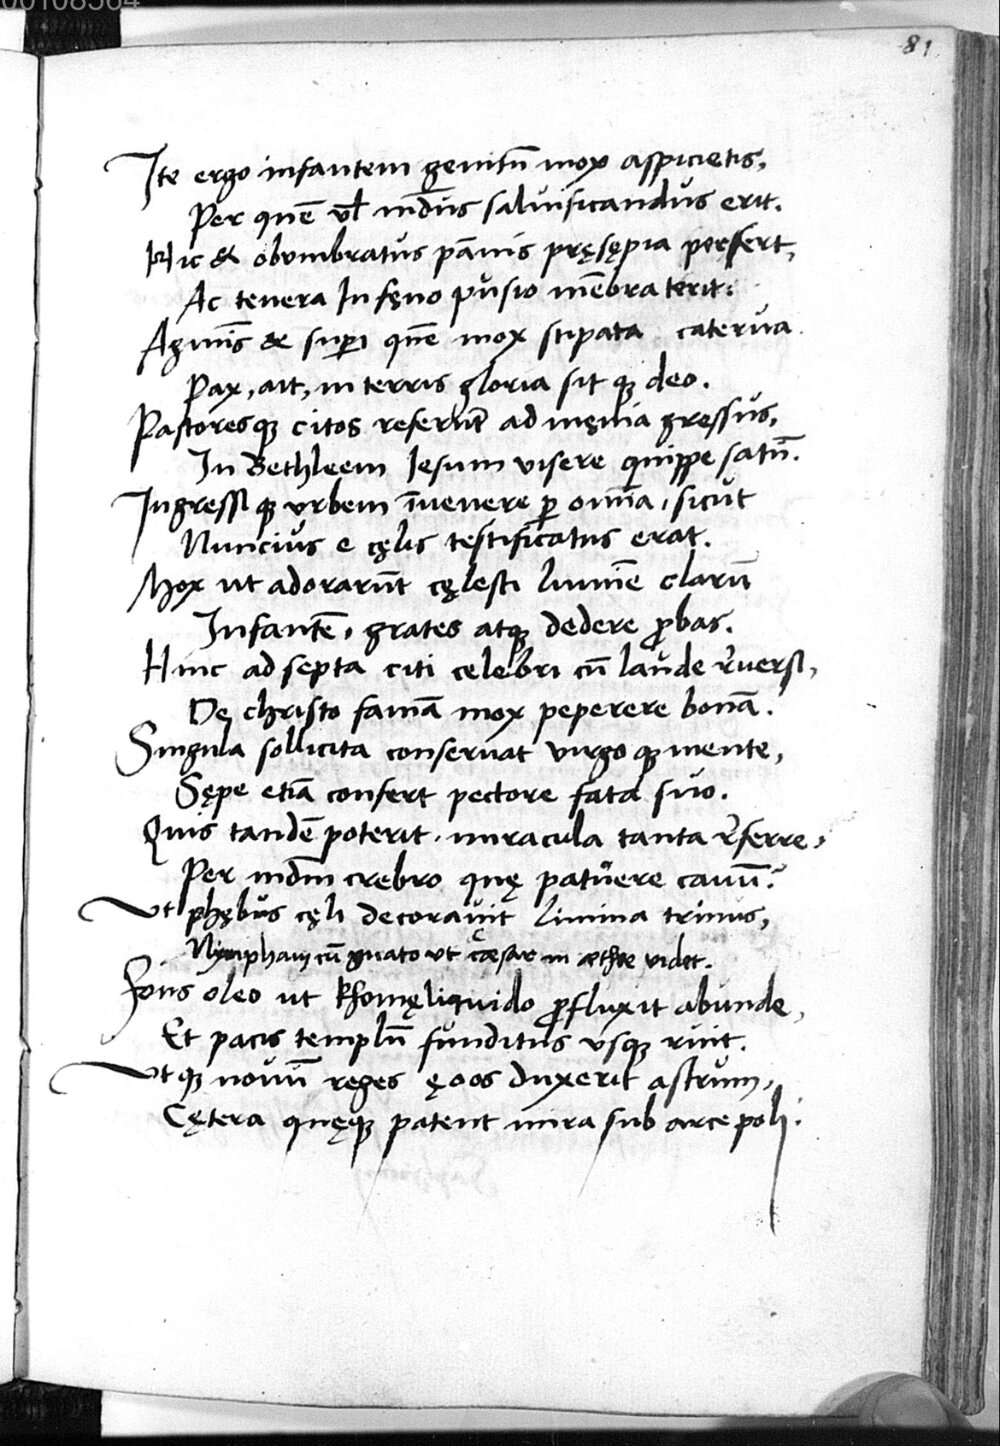 00108564
81
Ite ergo infantem genitū mox aspicietis,
Per quē vl̄ mūdus saluificandus erit.
Hic & obvmbratus pānis pręsępia perfert,
Ac tenera In fęno pusio mēbra terit:
Agminis & superi quē mox stipata caterua
Pax, ait, in terris gloria sit q̨ deo.
Pastoresq̨ citos referūt ad męnia gressus,
In Bethleem Iesum visere quippe satū.
Ingressiq̨ vrbem īuenere p̱ omnia, sicut
Nuncius e cęlis testificatus erat.
Mox ut adorarūt cęlesti lumīe clarū
Infantē, grates atq̨ dedere ꝓbas.
Hinc ad septa citi celebri cū laude r̄uersi,
Dę christo famā mox peperere bonā.
Singula sollicita conseruat virgo q̨ mente,
Sępe etiā confert pectore fata suo.
Quis tandē poterit miracula tanta r̄ferre,
Per mūdm crebro quę patuere cauū?
Vt phębus cęli decorauit limina trinus,
Nympham cū gnato vt cæsar in æthre videt.
Fons oleo ut Rhomę liquido ꝓfluxit abunde,
Et pacis templū funditus vsq̨ ruit.
Vtq̨ nouū reges ęoos duxerit astrum,
Cętera quęq̨ patent mira sub arce poli: